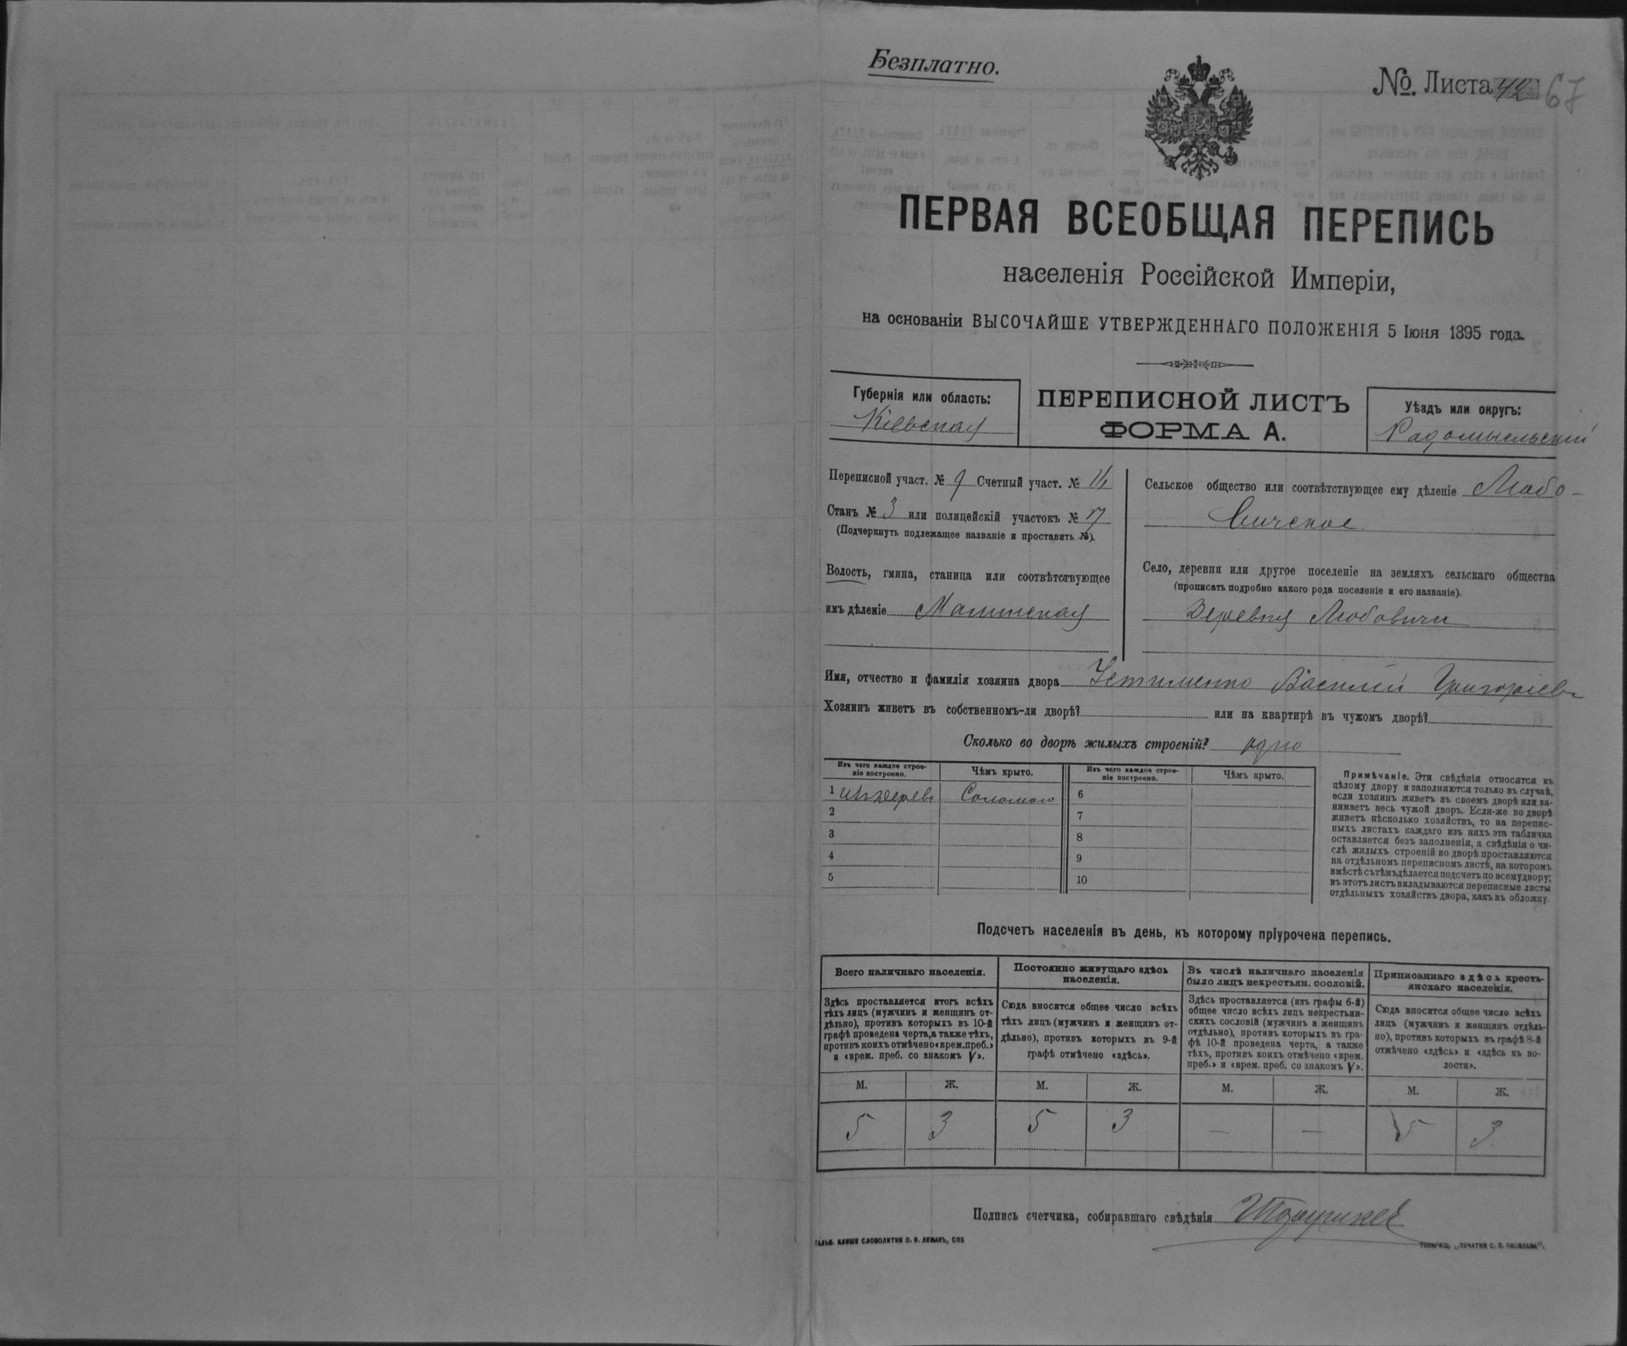 Безплатно.
№. Листа 42 67
ПЕРВАЯ ВСЕОБЩАЯ ПЕРЕПИСЬ
населенія Россійской Имперіи,
на основаніи ВЫСОЧАЙШЕ УТВЕРЖДЕННАГО ПОЛОЖЕНІЯ 5 Іюня 1895 года.
Губернія или область:
Кіевская
ПЕРЕПИСНОЙ ЛИСТЪ
ФОРМА А.
Уѣздъ или округъ:
Радомысльскій
Переписной участ. № 9 Счетный участ. №
Станъ № 3 или полицейскій участокъ №
(Подчеркнуть подлежащее названіе и проставить №).
Волость, гмина, станица или соотвѣтствующее
имъ дѣленіе Малинская
Сельское общество или соотвѣтствующее ему дѣленіе Любо-
вичское
Село, деревня или другое поселеніе на земляхъ сельскаго общества
(прописать подробно какого рода поселеніе и его названіе).
Деревня Любовичи
Имя, отчество и фамилія хозяина двора Устименко Василій Григорьевъ
Хозяинъ живетъ въ собственномъ-ли дворѣ? или на квартирѣ въ чужомъ дворѣ?
Сколько во дворѣ жилыхъ строеній? одно
Изъ чего каждое строе-
ніе построено.
Чѣмъ крыто.
Изъ чего каждое строе-
ніе построено.
Чѣмъ крыто.
1 изъ дерева Соломою 6
2 7
3 8
4 9
5 10
Примѣчаніе. Эти свѣдѣнія относятся къ
цѣлому двору и заполняются только въ случаѣ,
если хозяинъ живетъ въ своемъ дворѣ или за-
нимаетъ весь чужой дворъ. Если-же во дворѣ
живетъ нѣсколько хозяйствъ, то на перепис-
ныхъ листахъ каждаго изъ нихъ эта табличка
оставляется безъ заполненія, а свѣдѣнія о чи-
слѣ жилыхъ строеній во дворѣ проставляются
на отдѣльномъ переписномъ листѣ, на которомъ
вмѣстѣ съ тѣмъ дѣлается подсчетъ по всему двору;
въ этотъ листъ вкладываются переписные листы
отдѣльныхъ хозяйствъ двора, какъ въ обложку.
Подсчетъ населенія въ день, къ которому пріурочена перепись.
Всего наличнаго населенія.
Здѣсь проставляется итогъ всѣхъ
тѣхъ лицъ (мужчинъ и женщинъ от-
дѣльно), противъ которыхъ въ 10-й
графѣ проведена черта, а также тѣхъ,
противъ коихъ отмѣчено «врем. преб.»
и «врем. преб. со знакомъ V».
Постоянно живущаго здѣсь
населенія.
Сюда вносится общее число всѣхъ
тѣхъ лицъ (мужчинъ и женщинъ от-
дѣльно), противъ которыхъ въ 9-й
графѣ отмѣчено «здѣсь».
Въ числѣ наличнаго населенія
было лицъ некрестьян. сословій.
Здѣсь проставляется (изъ графы 6-й)
общее число всѣхъ лицъ некрестьян-
скихъ сословій (мужчинъ и женщинъ
отдѣльно), противъ которыхъ въ гра-
фѣ 10-й проведена черта, а также
тѣхъ, противъ коихъ отмѣчено «врем.
преб.» и «врем. преб. со знакомъ V».
Приписаннаго здѣсь кресть-
янскаго населенія.
Сюда вносится общее число всѣхъ
лицъ (мужчинъ и женщинъ отдѣль-
но), противъ которыхъ въ графѣ 8-й
отмѣчено «здѣсь» и «здѣсь къ во-
лости».
М. Ж. М. Ж. М. Ж. М. Ж.
5 3 5 3 — — 5 3
Подпись счетчика, собиравшаго свѣдѣнія
ГАЛЬВ. КЛИШЕ СЛОВОЛИТНИ О. И. ЛЕМАНЪ, СПБ
ТОВАРИЩ. „ПЕЧАТНЯ С. П. ЯКОВЛЕВА".